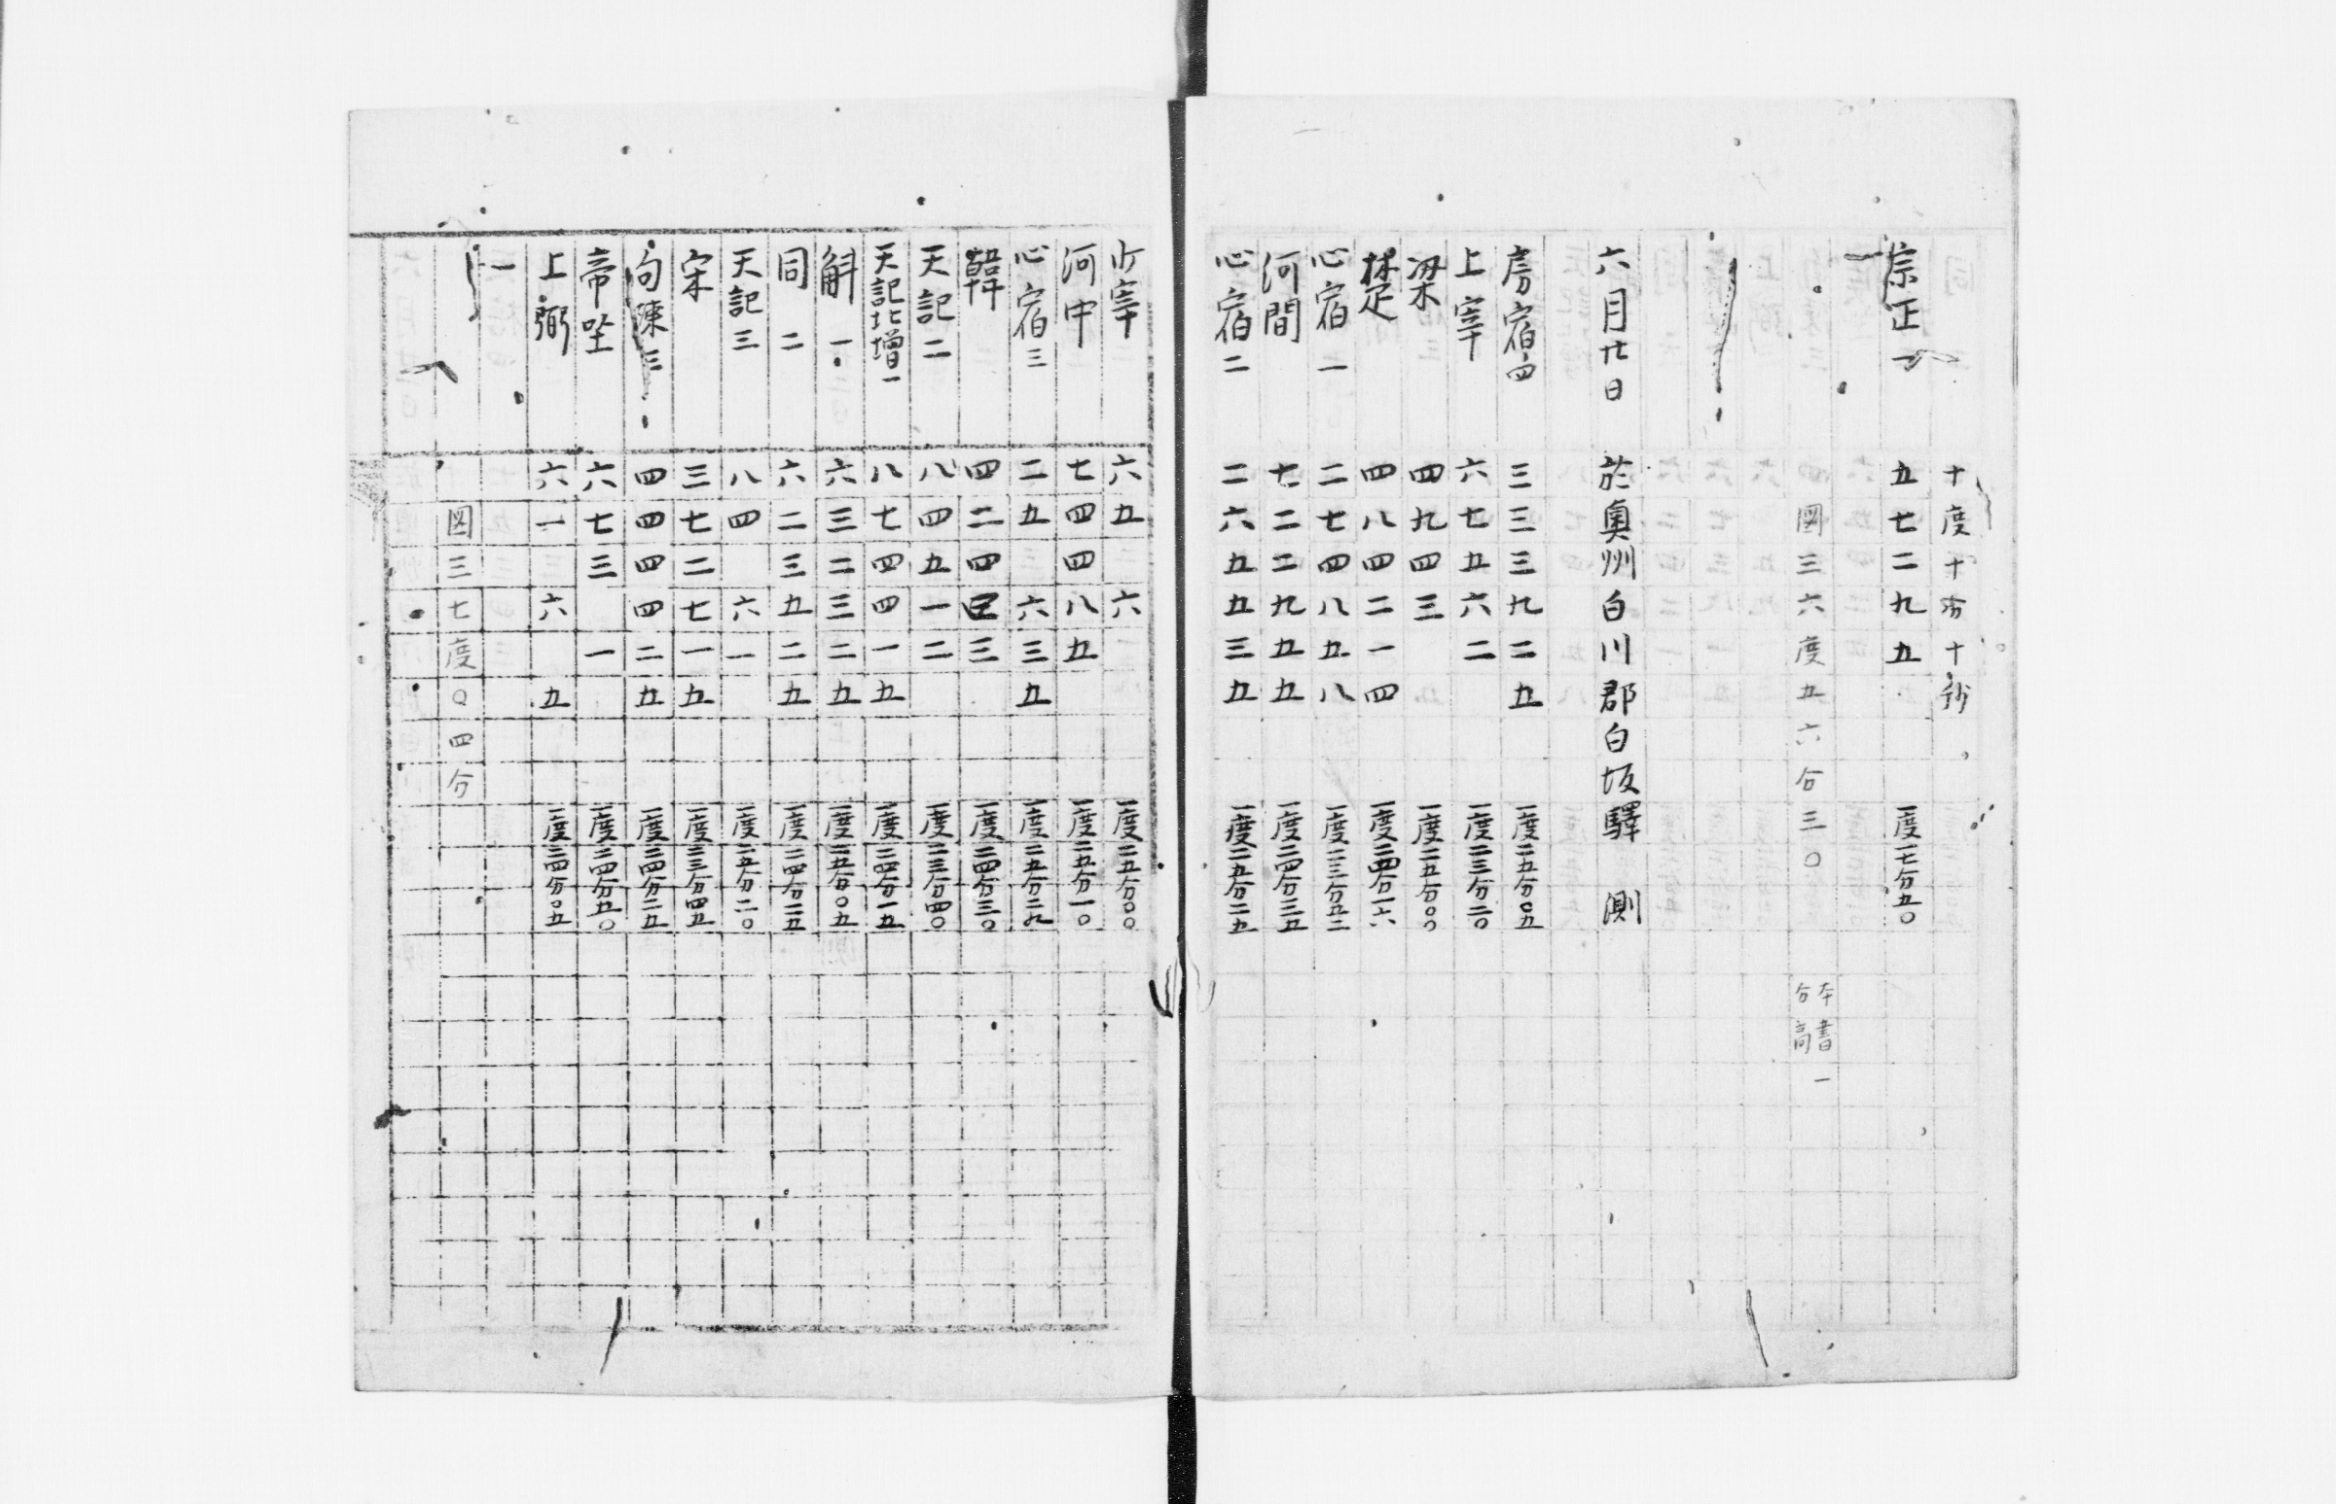 十度十分十秒
宗正一 五七二九五 一度一七分五〇
國三六度五六分三〇 本書一分高
六月廿日 於奧州白川郡白坂驛 測
房宿四 三三三九二五 一度二五分〇五
上宰 六七五六二 一度二三分二〇
梁 四九四三 一度二五分〇〇
楚 四八四二一四 一度二四分一六
心宿一 二七四八五八 一度二三分五三
河間 七二二九五五 一度二四分三五
心宿二 二六五五三五 一度二五分二五
少宰 六五 六 一度二五分〇〇
河中 七四四八五 一度二五分一〇
心宿三 二五 六三五 一度二五分二九
韓 四二四四三 一度二四分三〇
天記二 八四五一二 一度二三分四〇
天記北增一 八七四四一五 一度二四分一五
斛一 六三二三二五 一度二五分〇五
同二 六二三五二五 一度二四分二五
天記三 八四 六一 一度二五分二〇
宋 三七二七一五 一度二三分四五
勾陳三 四四四四二五 一度二四分二五
帝坐 六七三 一 一度二四分五〇
上弼 六一 六 五 一度二四分〇五
一
國三七度〇四分